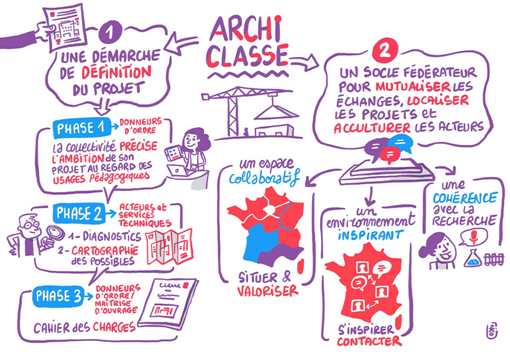 ARCHI
CLASSE
1
UNE DÉMARCHE
DE DÉFINITION
DU PROJET
PHASE 1 DONNEURS
D'ORDRE
La collectivité PRÉCISE
L'AMBITION de son
PROJET AU REGARD DES
USAGES Pédagogiques
PHASE 2 ACTEURS et
SERVICES
TECHNIQUES
1- DIAGNOSTICS
2- CARTOGRAPHIE
des POSSIBLES
PHASE 3 DONNEURS
D'ORDRE/
MAÎTRISE
D'OUVRAGE
CAHIER des CHARGES
2
UN SOCLE FÉDÉRATEUR
POUR MUTUALISER LES
ÉCHANGES, LOCALISER
LES PROJETS ET
ACCULTURER LES ACTEURS
un espace
collaboratif
SITUER &
VALORISER
un
environnement
INSPIRANT
S'INSPIRER
CONTACTER
une
COHÉRENCE
avec LA
RECHERCHE